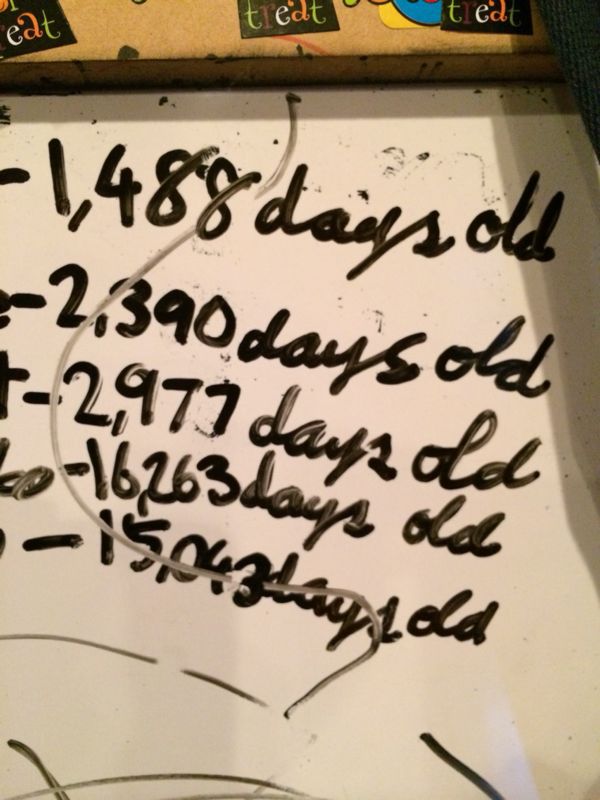 or treat
treat
treat
-1,488 days old
e-2,390 days old
t-2,977 days old
-16,263 days old
-15,043 days old